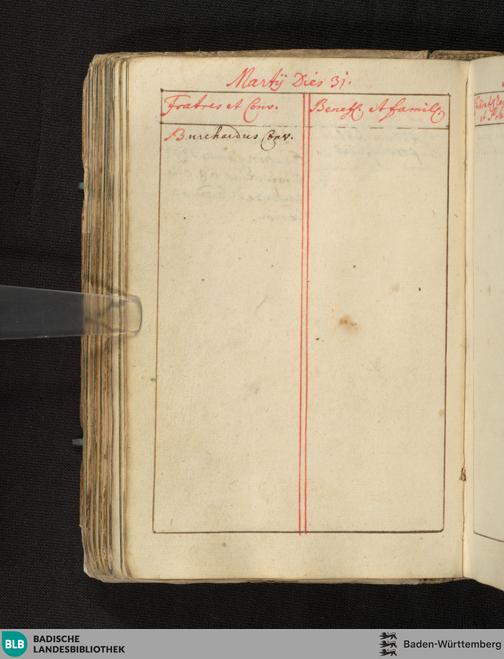 Martÿ Dies 31.
Fratres et Conv.
Benef. et famil.
Burchardus Conv.
BLB
BADISCHE
LANDESBIBLIOTHEK
Baden-Württemberg